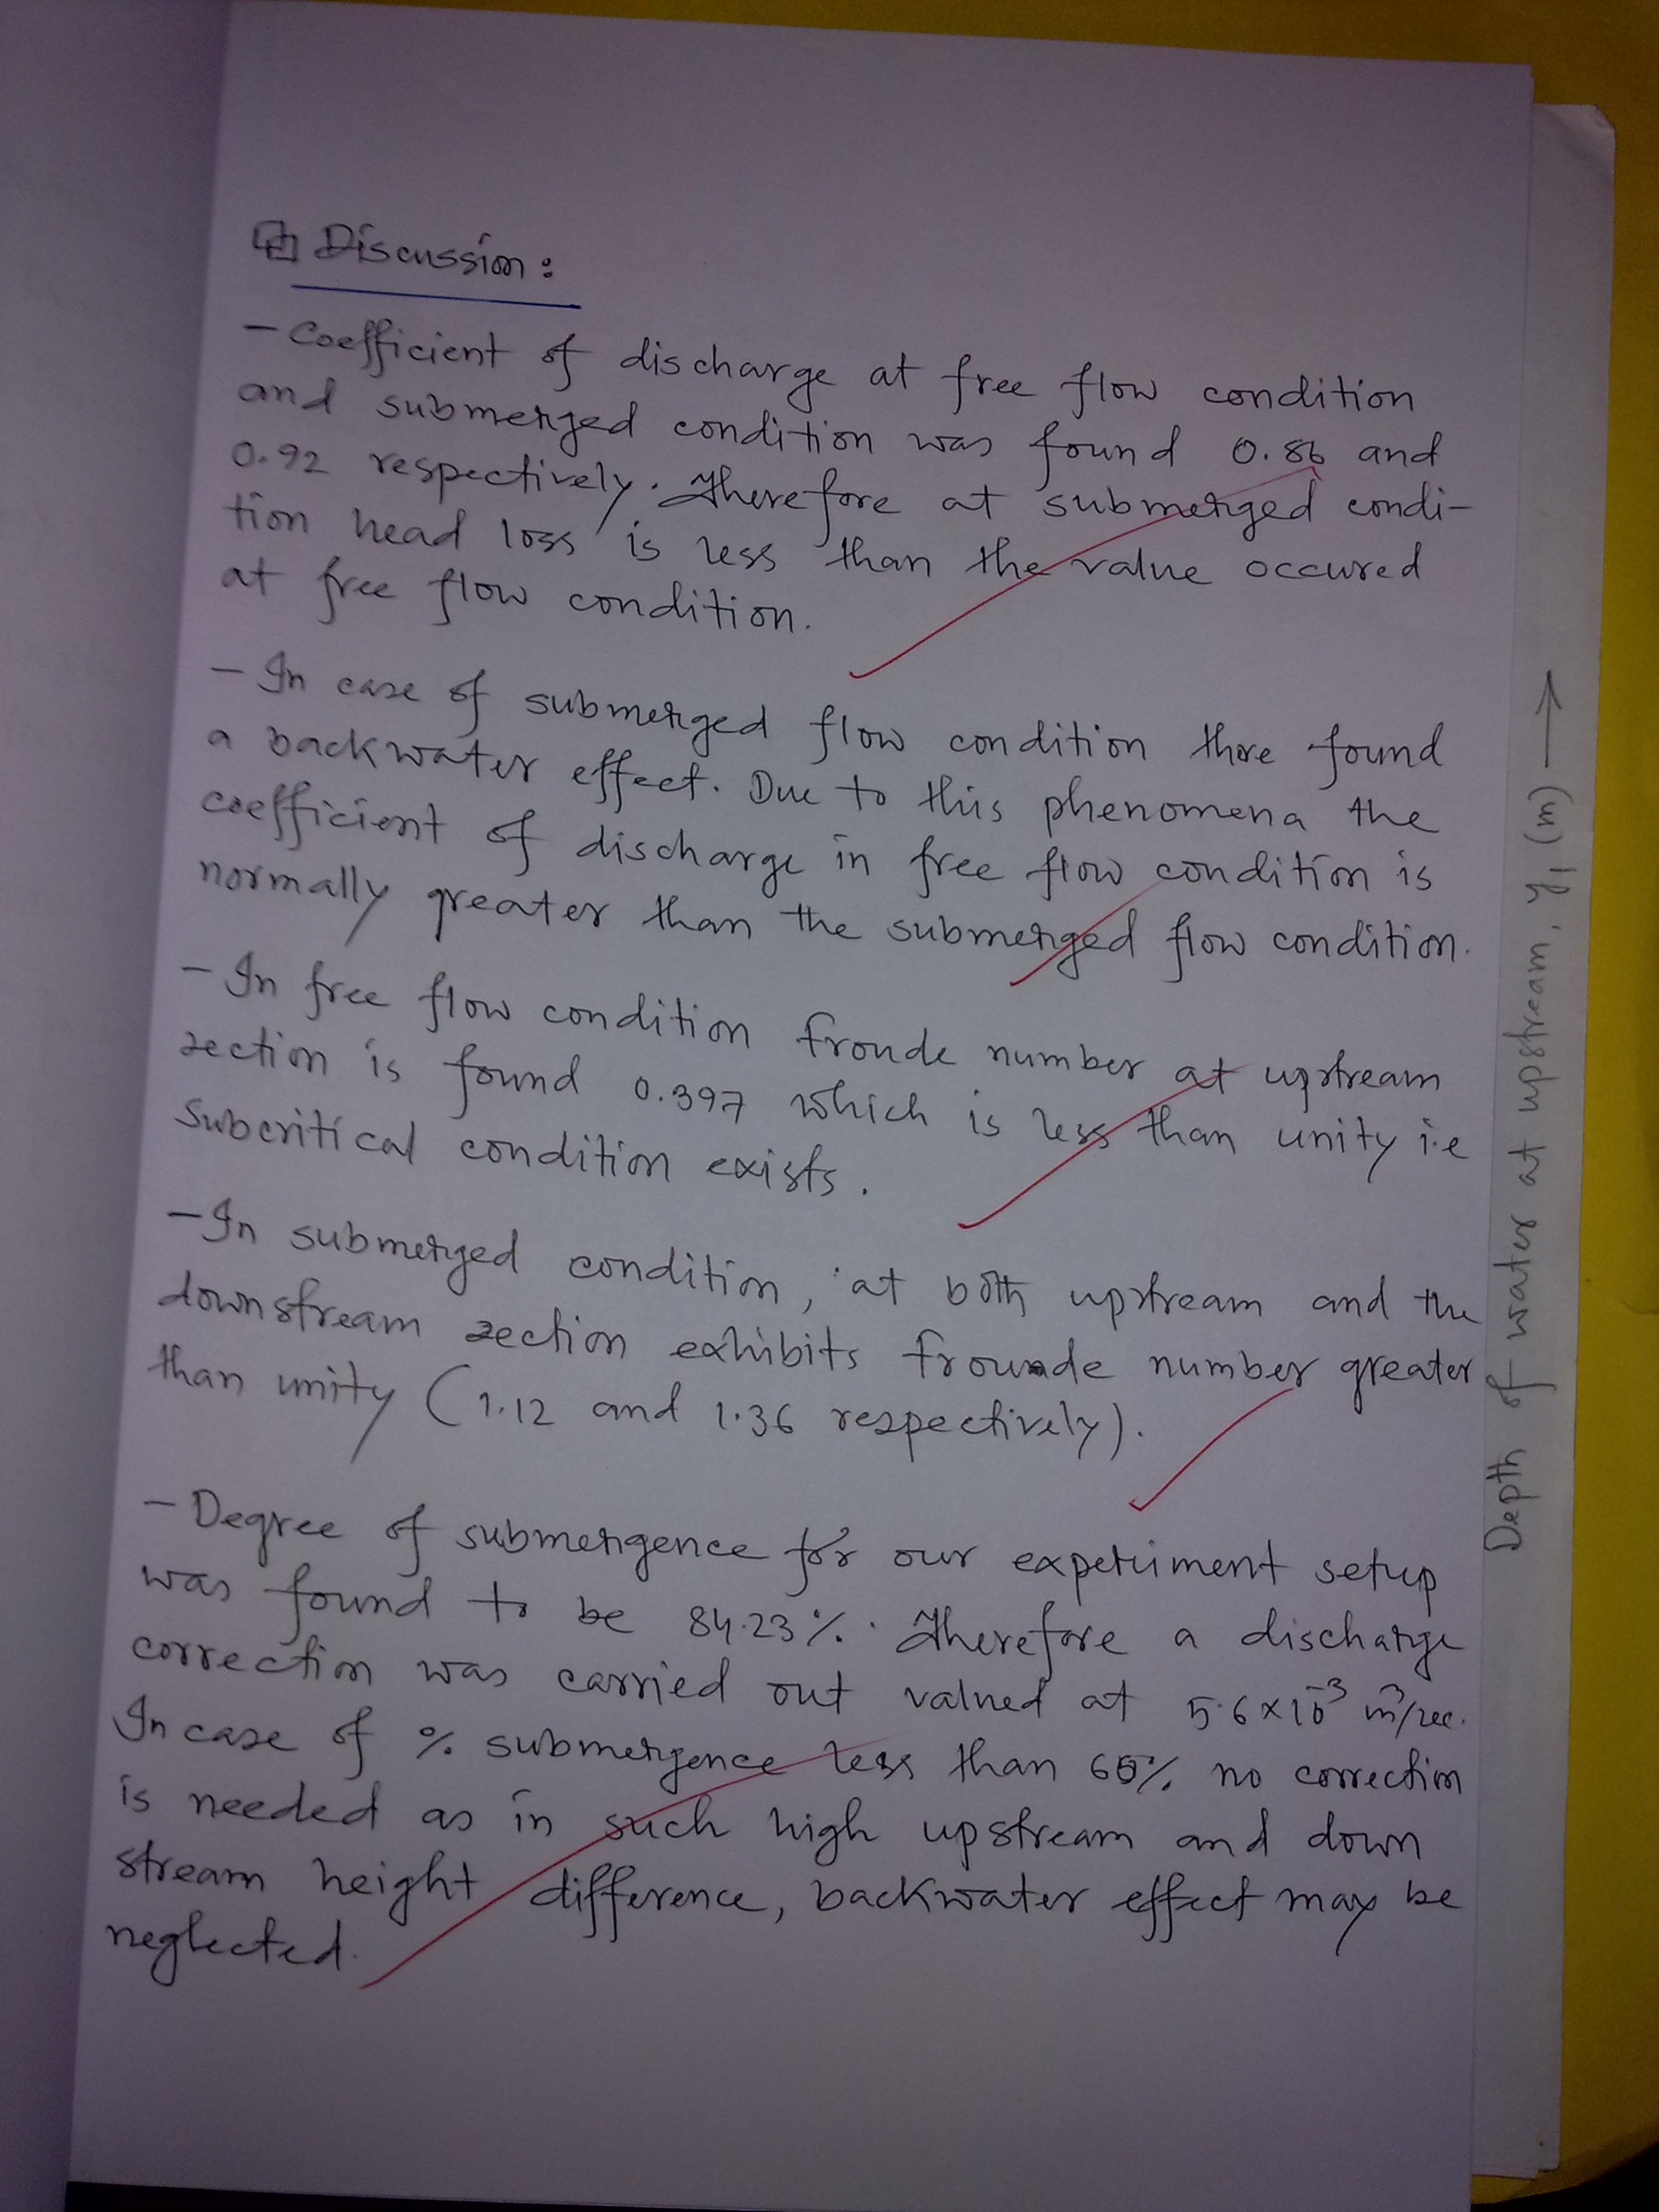 Discussion:
- Coefficient of discharge at free flow condition
and submerged condition was found 0.86 and
0.92 respectively. Therefore at submerged condi-
tion head loss is less than the value occured
at free flow condition.
- In case of submerged flow condition there found
a backwater effect. Due to this phenomena the
coefficient of discharge in free flow condition is
normally greater than the submerged flow condition.
- In free flow condition froude number at upstream
section is found 0.397 which is less than unity i.e
subcritical condition exists.
- In submerged condition, at both upstream and the
downstream section exhibits froude number greater
than unity (1.12 and 1.36 respectively).
- Degree of submergence for our experiment setup
was found to be 84.23%. Therefore a discharge
correction was carried out valued at 5.6×10⁻³ m³/sec.
In case of % submergence less than 60% no correction
is needed as in such high upstream and down
stream height difference, backwater effect may be
neglected.
Depth of water at upstream, y₁ (m) →